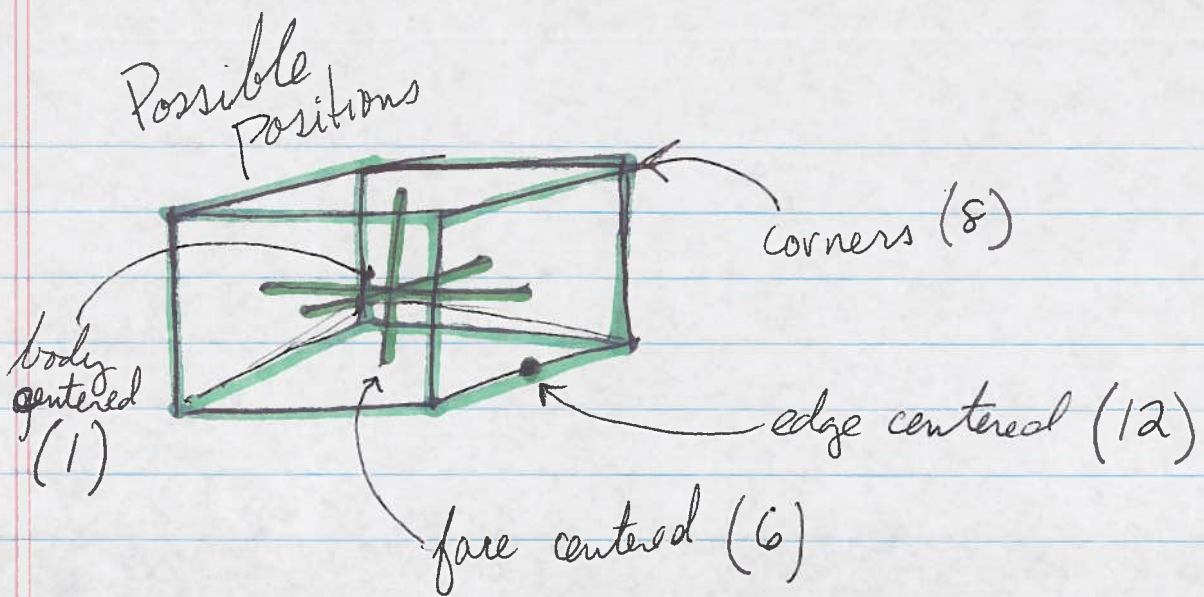 Possible
positions
corners (8)
body
centered
(1)
edge centered (12)
face centered (6)